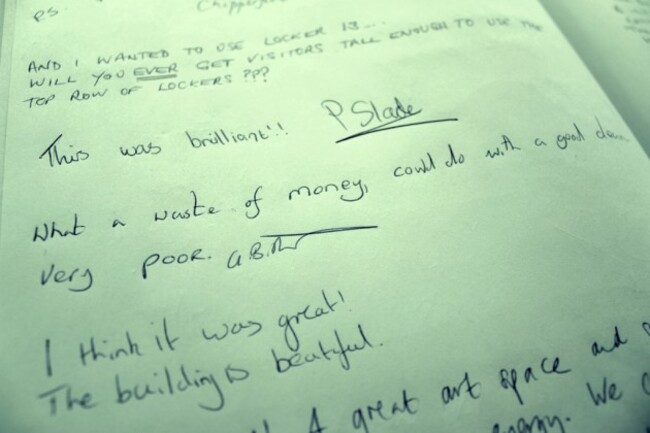 PS.
AND I WANTED TO USE LOCKER 13...
WILL YOU EVER GET VISITORS TALL ENOUGH TO USE THE
TOP ROW OF LOCKERS???
This was brilliant!! P Slade
What a waste of money, could do with a good
Very poor.
I think it was great!
The building is beatiful.
A great art space and
We